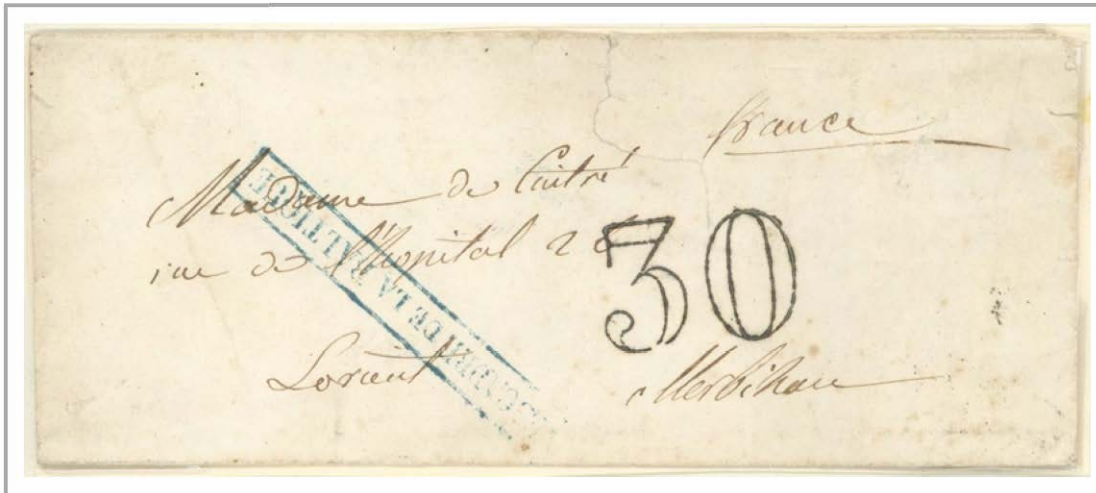 france
Madame de
rue de l'hopital 26
30
Lorient Morbihan
DE LA BALTIQUE